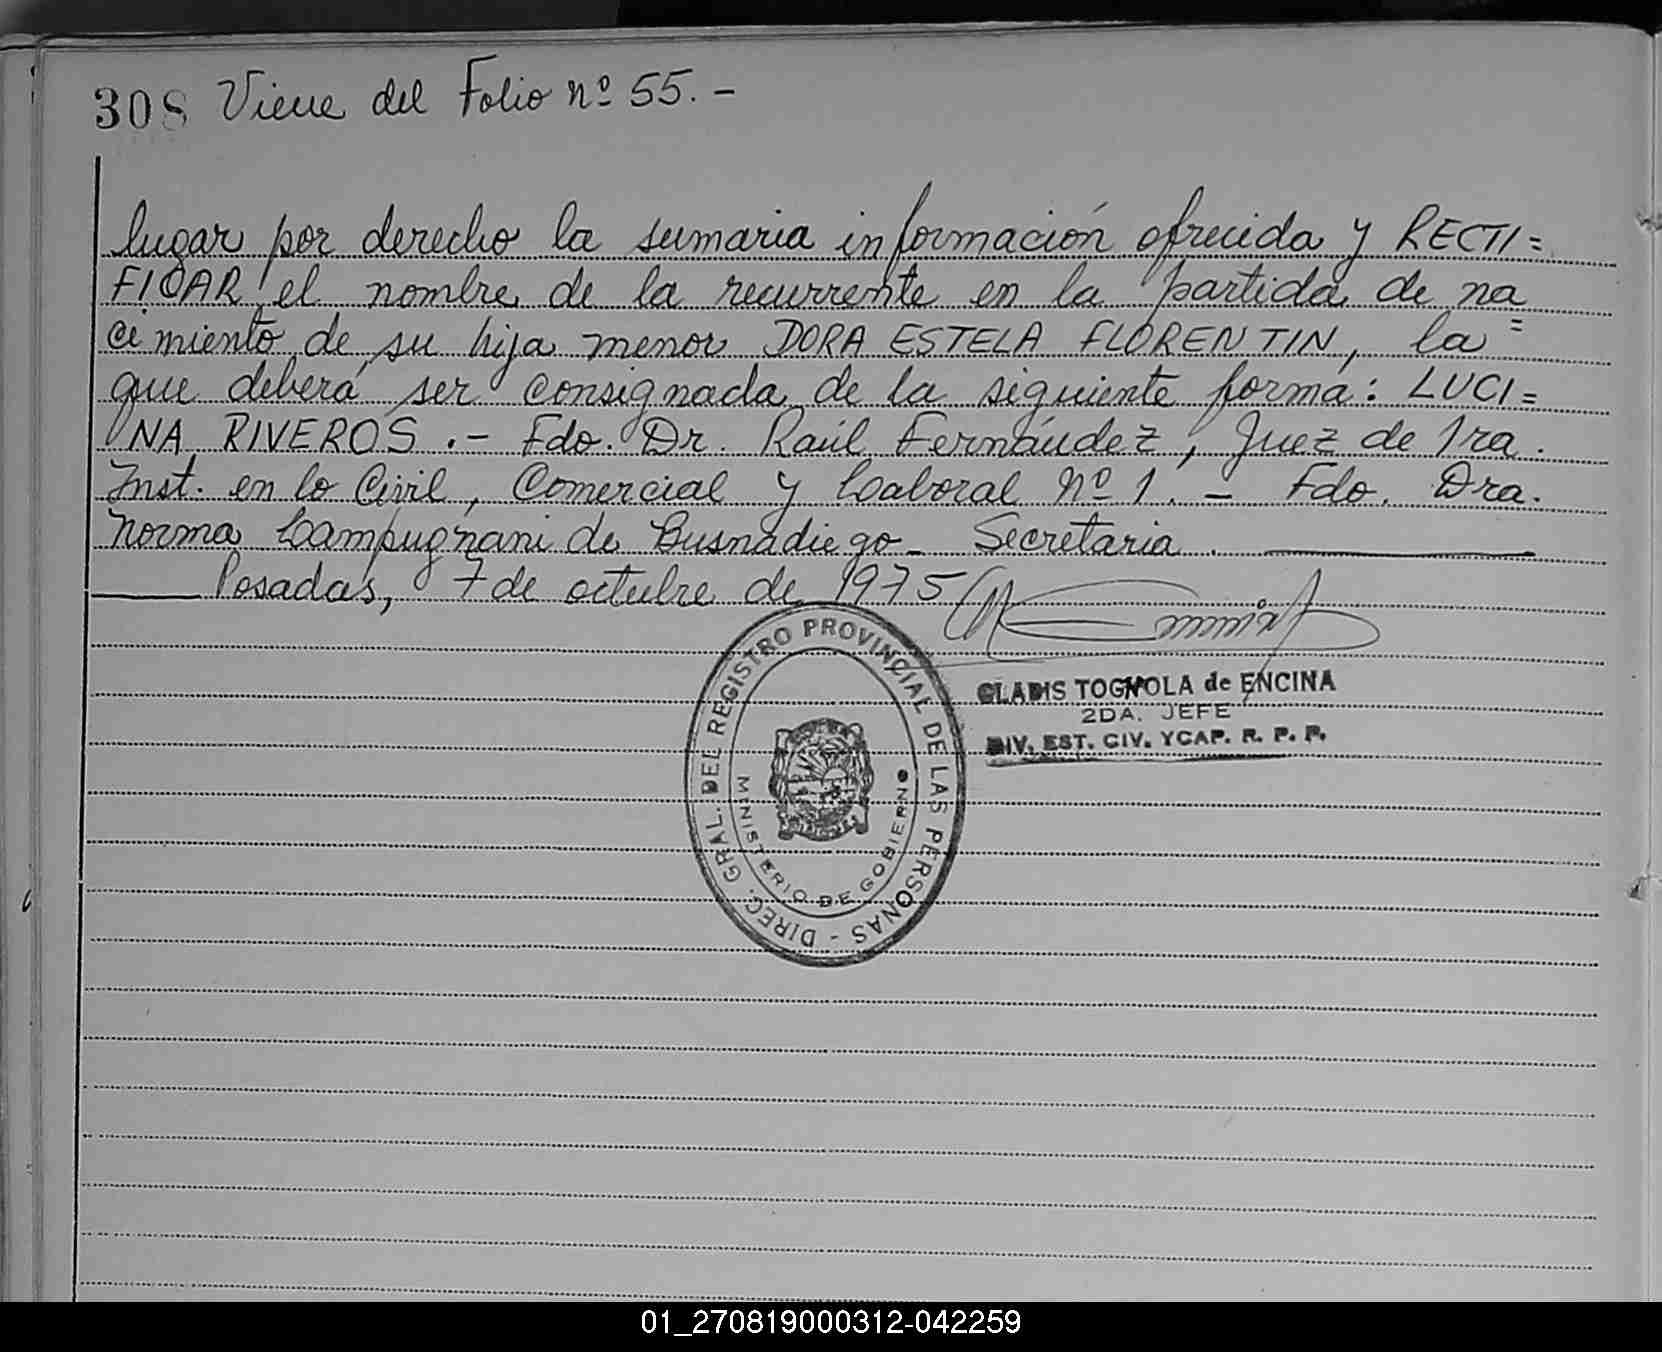 308 Viene del Folio nº 55. -
lugar por derecho la sumaria información ofrecida y RECTI=
FICAR el nombre de la recurrente en la partida de na=
cimiento de su hija menor DORA ESTELA FLORENTIN, la
que deberá ser consignada de la siguiente forma: LUCI=
NA RIVEROS .- Fdo. Dr. Raúl Fernández, Juez de 1ra.
Inst. en lo Civil, Comercial y Laboral Nº 1. - Fdo. Dra.
Norma Campugnani de Busnadiego - Secretaria.
Posadas, 7 de octubre de 1975
DIREC. GRAL. DEL REGISTRO PROVINCIAL DE LAS PERSONAS -
MINISTERIO DE GOBIERNO
GLADIS TOGNOLA de ENCINA
2DA. JEFE
DIV. EST. CIV. YCAP. R. P. P.
01_270819000312-042259